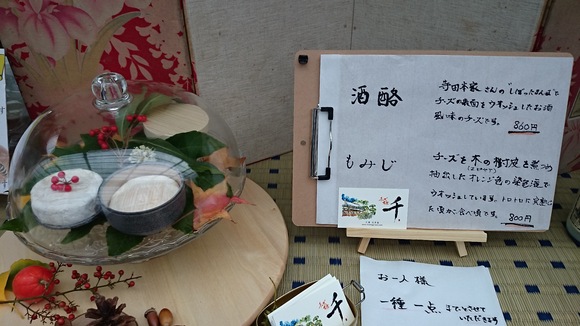 酒酪
寺田本家さんの"しぼったまんま"で
チーズの表面をウオッシュしたお酒
風味のチーズです。 860円
もみじ
チーズを木の樹皮を煮つめ
抽出したオレンジ色の染色液で
ウオッシュしています。トロトロに完熟した
食べ頃です。 800円
千
お一人様
一種一点までとさせて
いただきます